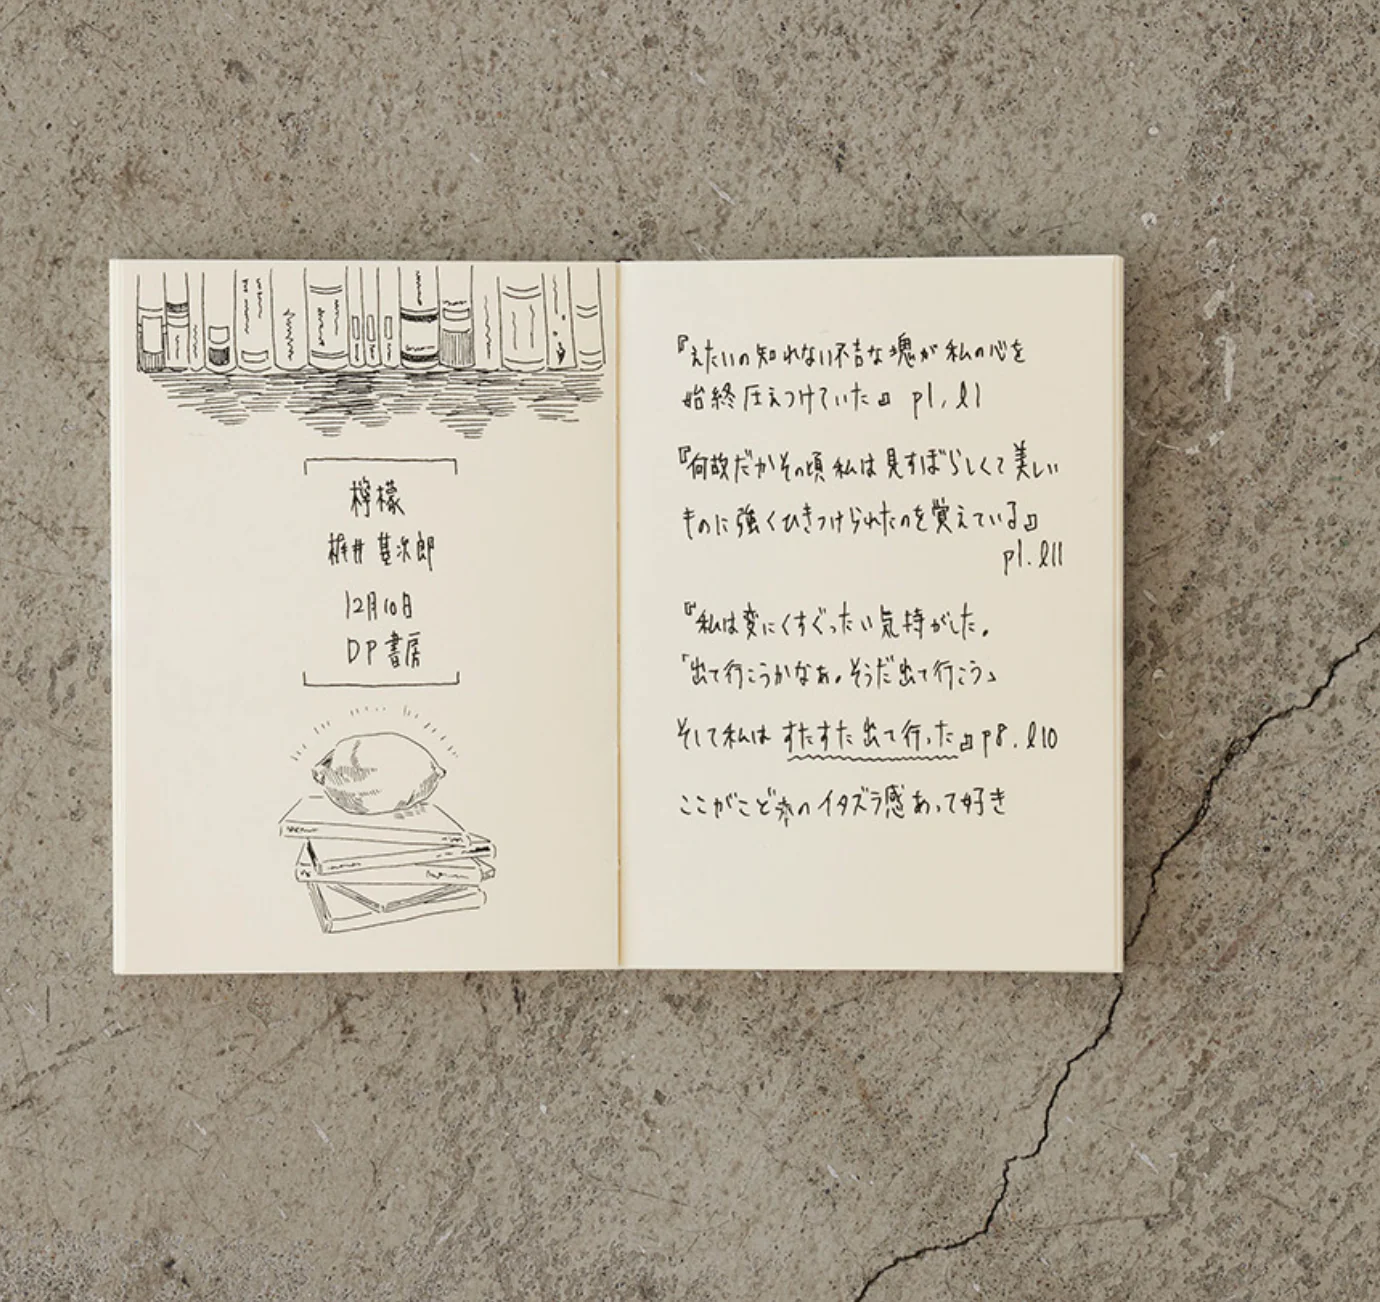 檸檬
梶井 基次郎
12月10日
DP書房
『えたいの知れない不吉な塊が私の心を
始終圧えつけていた』 p1, l1
『何故だかその頃私は見すぼらしくて美しい
ものに強くひきつけられたのを覚えている』
p1. l11
『私は変にくすぐったい気持がした。
「出て行こうかなあ。そうだ出て行こう」
そして私は すたすた出て行った』p8. l10
ここがこど\の イタズラ感あって好き